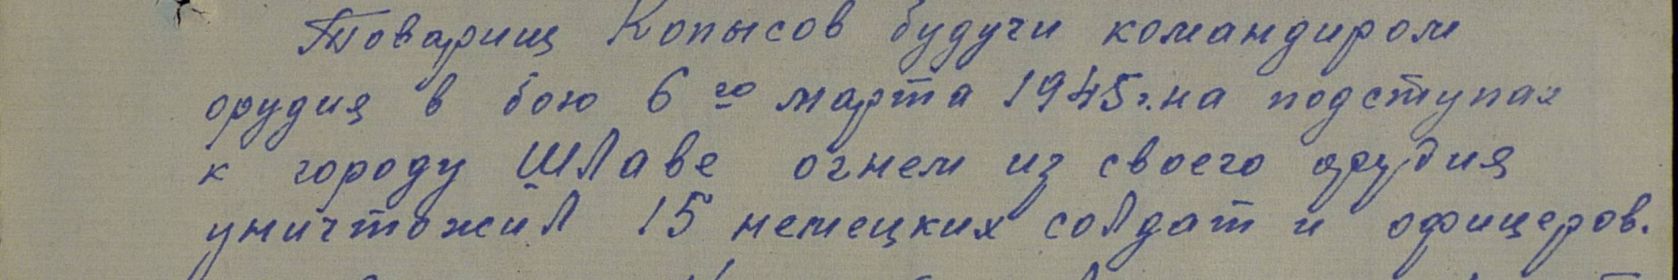 Товарищ Копысов будучи командиром
орудия в бою 6го марта 1945г. на подступах
к городу Шлаве огнем из своего орудия
уничтожил 15 немецких солдат и офицеров.